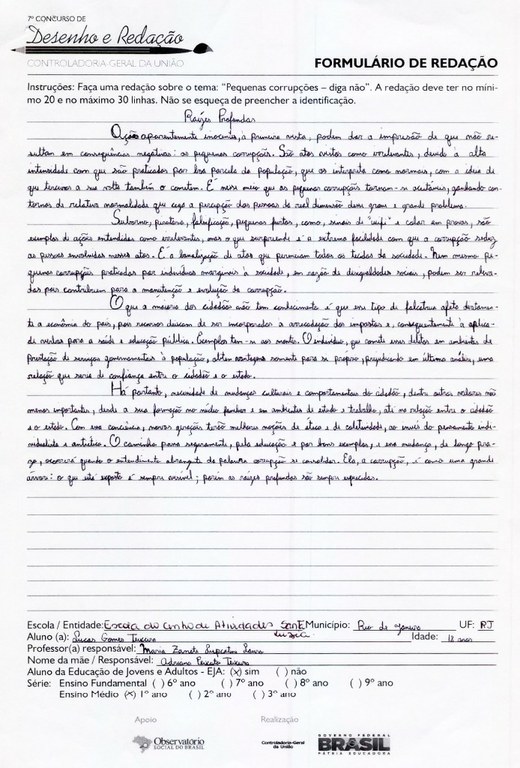 7º CONCURSO DE
Desenho e Redação
CONTROLADORIA-GERAL DA UNIÃO
FORMULÁRIO DE REDAÇÃO
Instruções: Faça uma redação sobre o tema: "Pequenas corrupções – diga não". A redação deve ter no míni-
mo 20 e no máximo 30 linhas. Não se esqueça de preencher a identificação.
Raízes Profundas
Ações aparentemente inocentes, a primeira vista, podem dar a impressão de que não re-
sultam em consequências negativas: as pequenas corrupções. São atos vistos como irrelevantes, devido à alta
intensidade com que são praticados por boa parcela da população, que os interpreta como normais, com a ideia de
que terceiros a sua volta também o cometem. É nesse meio que as pequenas corrupções tornam-se aceitáveis, ganhando con-
tornos de relativa normalidade que cega a percepção das pessoas do real dimensão deste grave e grande problema.
Suborno, pirataria, falsificação, pequenos furtos, como, sinais de "wifi" e colar em provas, são
exemplos de ações entendidas como irrelevantes, mas o que surpreende é a extrema facilidade com que a corrupção seduz
as pessoas envolvidas nesses atos. É a banalização de atos que permeiam todos os tecidos da sociedade. Nem mesmo pe-
quenas corrupções praticadas por indivíduos marginais à sociedade, em razão de desigualdades sociais, podem ser releva-
das pois contribuem para a manutenção e evolução da corrupção.
O que a maioria dos cidadãos não tem conhecimento é que esse tipo de falcatrua afeta diretamen-
te a economia do país, pois recursos deixam de ser incorporados a arrecadação dos impostos e, consequentemente à aplica-
da verba para a saúde e educação pública. Exemplos tem-se aos montes. O indivíduo, que comete esses delitos em ambientes de
prestação de serviços governamentais à população, obtem vantagens somente para si próprio, prejudicando em última análise, uma
relação que seria de confiança entre o cidadão e o estado.
Há portanto, necessidade de mudanças culturais e comportamentais do cidadão, dentre outros valores não
menos importantes, desde a sua formação no núcleo familiar e em ambientes de estudo e trabalho, até na relação entre o cidadão
e o estado. Com essa consciência, novas gerações terão melhores noções de ética e de coletividade, ao invés do pensamento indi-
vidualista e antiético. O caminho passa seguramente, pela educação e por bons exemplos, e essa mudança, de longo pra-
zo, ocorrerá quando o entendimento abrangente da palavra corrupção se consolidar. Ela, a corrupção, é como uma grande
árvore: o que está exposto é sempre visível; porém as raízes profundas são sempre esquecidas.
Escola / Entidade: Escola do Município: Rio de Janeiro UF: RJ
Aluno (a): Lucas Gomes Teixeira Idade: 18 anos
Professor(a) responsável: Maria
Nome da mãe / Responsável: Adriana Peixoto Teixeira
Aluno da Educação de Jovens e Adultos - EJA: (x) sim ( ) não
Série: Ensino Fundamental ( ) 6º ano ( ) 7º ano ( ) 8º ano ( ) 9º ano
Ensino Médio (x) 1º ano ( ) 2º ano ( ) 3º ano
Apoio Realização
Observatório
SOCIAL DO BRASIL
Controladoria-Geral
da União
GOVERNO FEDERAL
BRASIL
PÁTRIA EDUCADORA